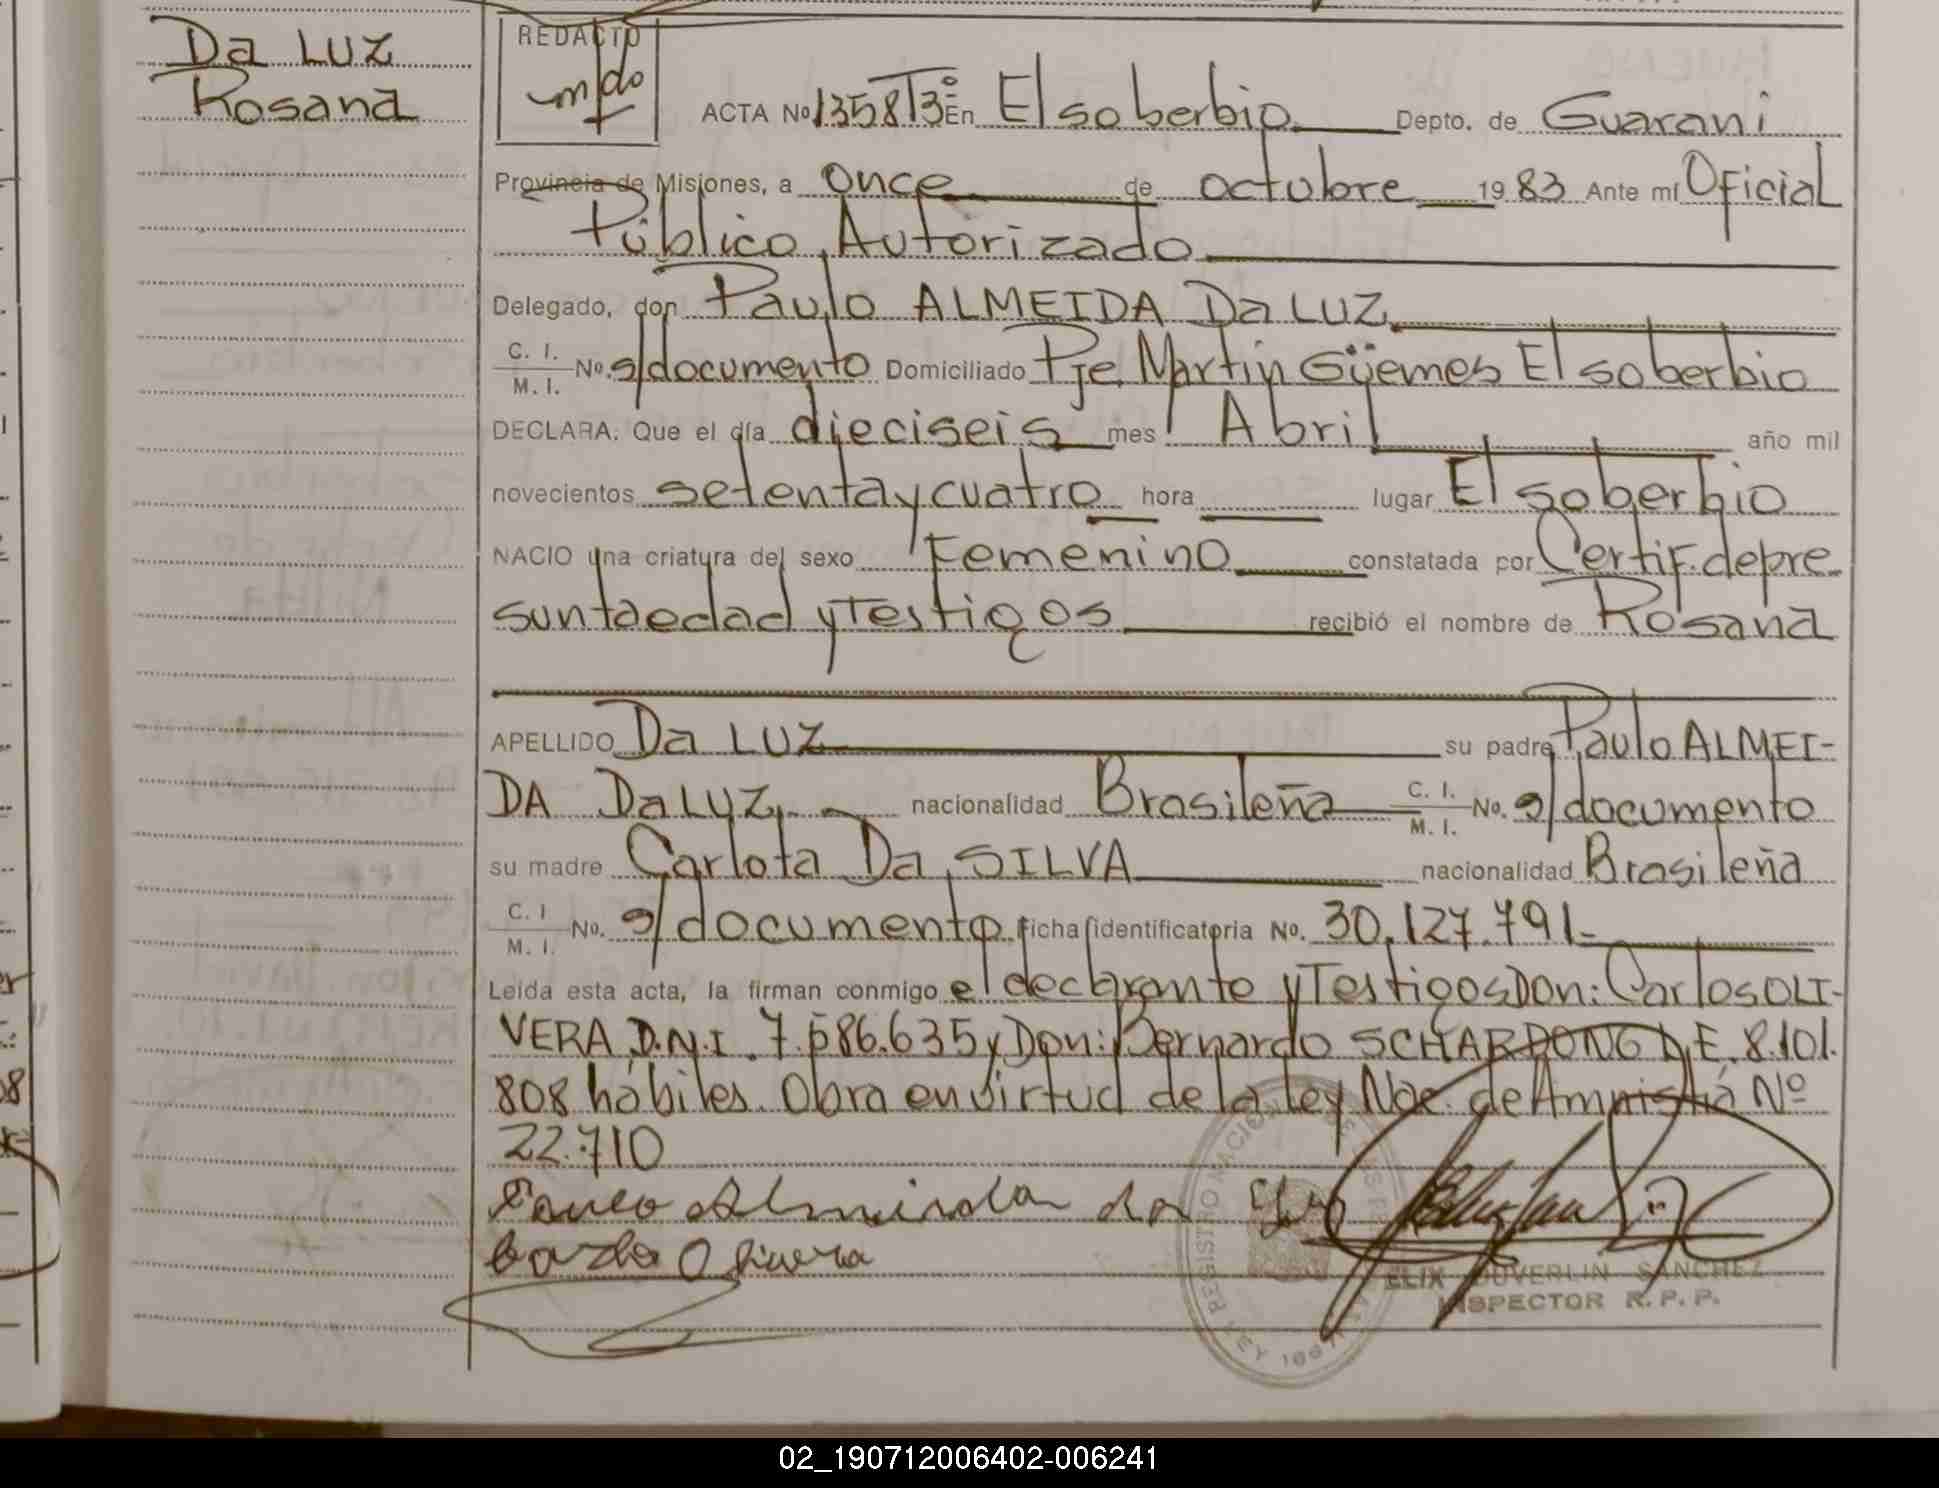 Da LUZ
Rosana
REDACTO
ACTA Nº 1358 Tº 3º En El soberbio Depto. de Guarani
Provincia de Misiones, a once de octubre 1983 Ante mí Oficial
Público Autorizado
Delegado, don Paulo ALMEIDA Da LUZ
C. I.
M. I. No. s/documento Domiciliado Pje. Martin Güemes El soberbio
DECLARA: Que el día dieciseis mes Abril año mil
novecientos setenta y cuatro hora lugar El soberbio
NACIO una criatura del sexo Femenino constatada por Certif. de pre
sunta edad y Testigos recibió el nombre de Rosana
APELLIDO Da LUZ su padre Paulo ALMEI-
DA Da LUZ nacionalidad Brasileña C. I. M. I. No. s/documento
su madre Carlota Da SILVA nacionalidad Brasileña
C. I M. I. No. s/documento ficha identificatoria No. 30.127.791-
Leída esta acta, la firman conmigo el declarante y Testigos Don: Carlos OLI-
VERA D.N.I. 7.586.635 y Don: Bernardo SCHARDONG L.E. 8.101.
808 hábiles. Obra en virtud de la Ley Nac. de Amnistía Nº
22.710
Paulo Almeida da Luz
Carlos Olivera
REGISTRO NACIO
LEY
ELIX DUVERLIN SANCHEZ
INSPECTOR R. P. P.
02_190712006402-006241